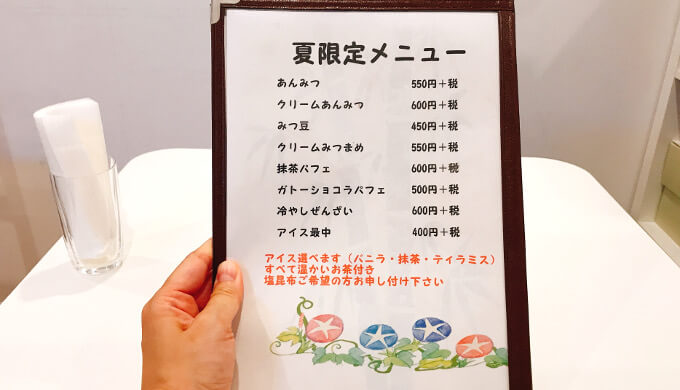 夏限定メニュー
あんみつ 550円+税
クリームあんみつ 600円+税
みつ豆 450円+税
クリームみつまめ 550円+税
抹茶パフェ 600円+税
ガトーショコラパフェ 500円+税
冷やしぜんざい 600円+税
アイス最中 400円+税
アイス選べます（バニラ・抹茶・ティラミス）
すべて温かいお茶付き
塩昆布ご希望の方お申し付け下さい